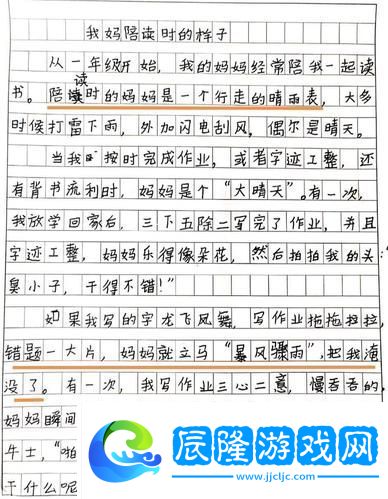 我妈陪读时的样子
从一年级开始，我的妈妈经常陪我一起读
书。陪读时的妈妈是一个行走的晴雨表，大多
时候打雷下雨，外加闪电刮风，偶尔是晴天。
当我按时完成作业，或者字迹工整，还
有背书流利时，妈妈是个“大晴天”。有一次，
我放学回家后，三下五除二写完了作业，并且
字迹工整，妈妈乐得像朵花，然后拍拍我的头：“
臭小子，干得不错！”
如果我写的字龙飞凤舞，写作业拖拖拉拉，
错题一大片，妈妈就立马“暴风骤雨”，把我淹
没了。有一次，我写作业三心二意，慢吞吞的，
妈妈瞬间
斗士，“啪
干什么呢
辰隆游戏网
www.jjcljc.com